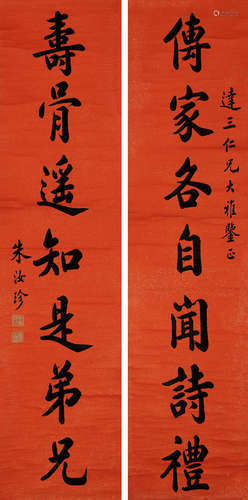 傳家各自聞詩禮
達三仁兄大雅鑒正
壽骨遥知是弟兄
朱汝珍